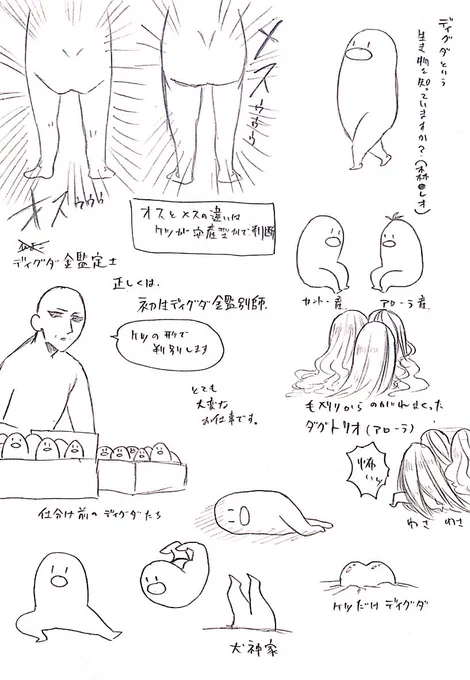 ディグダという
生き物を知っていますか?(森@レオ)
メスゥゥゥ
メスゥゥゥ
オスとメスの違いは
ケツが安産型かで判断
ディグダ鑑定士
正しくは、
初生ディグダ鑑別師.
ケツの形で
判別します
とても
大変な
お仕事です。
仕分け前のディグダたち
カントー産
アローラ産
毛刈りからのがれまくった
ダグトリオ(アローラ)
怖いッ
わさ わさ
犬神家
ケツだけディグダ